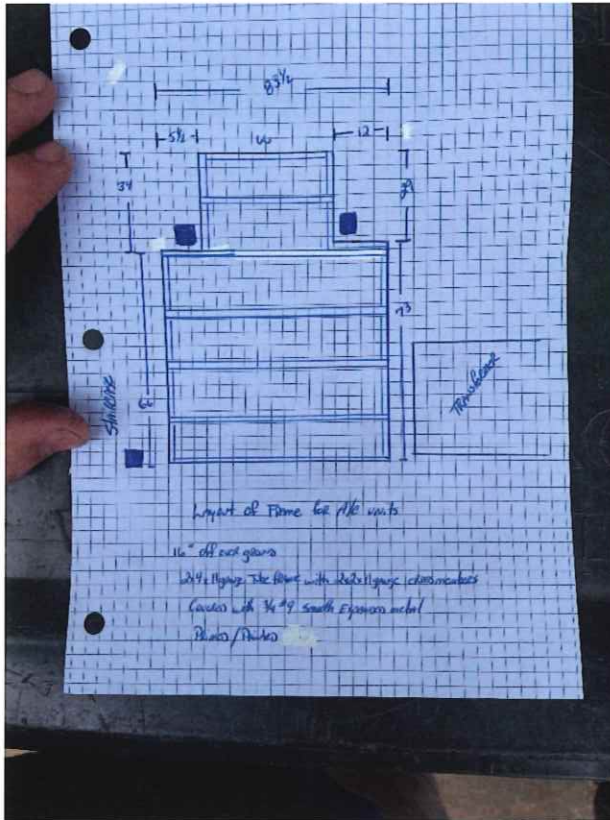 83 1/2
5 1/2
66
12
34
STAIRCASE
73
TRANSFORMER
Layout of Frame for A/C units
16" off over ground
2x4x11gauge Tube frame with 2x2x11gauge crossmembers
Covered with 3/4 #9 smooth Expanded metal
Primed/Painted